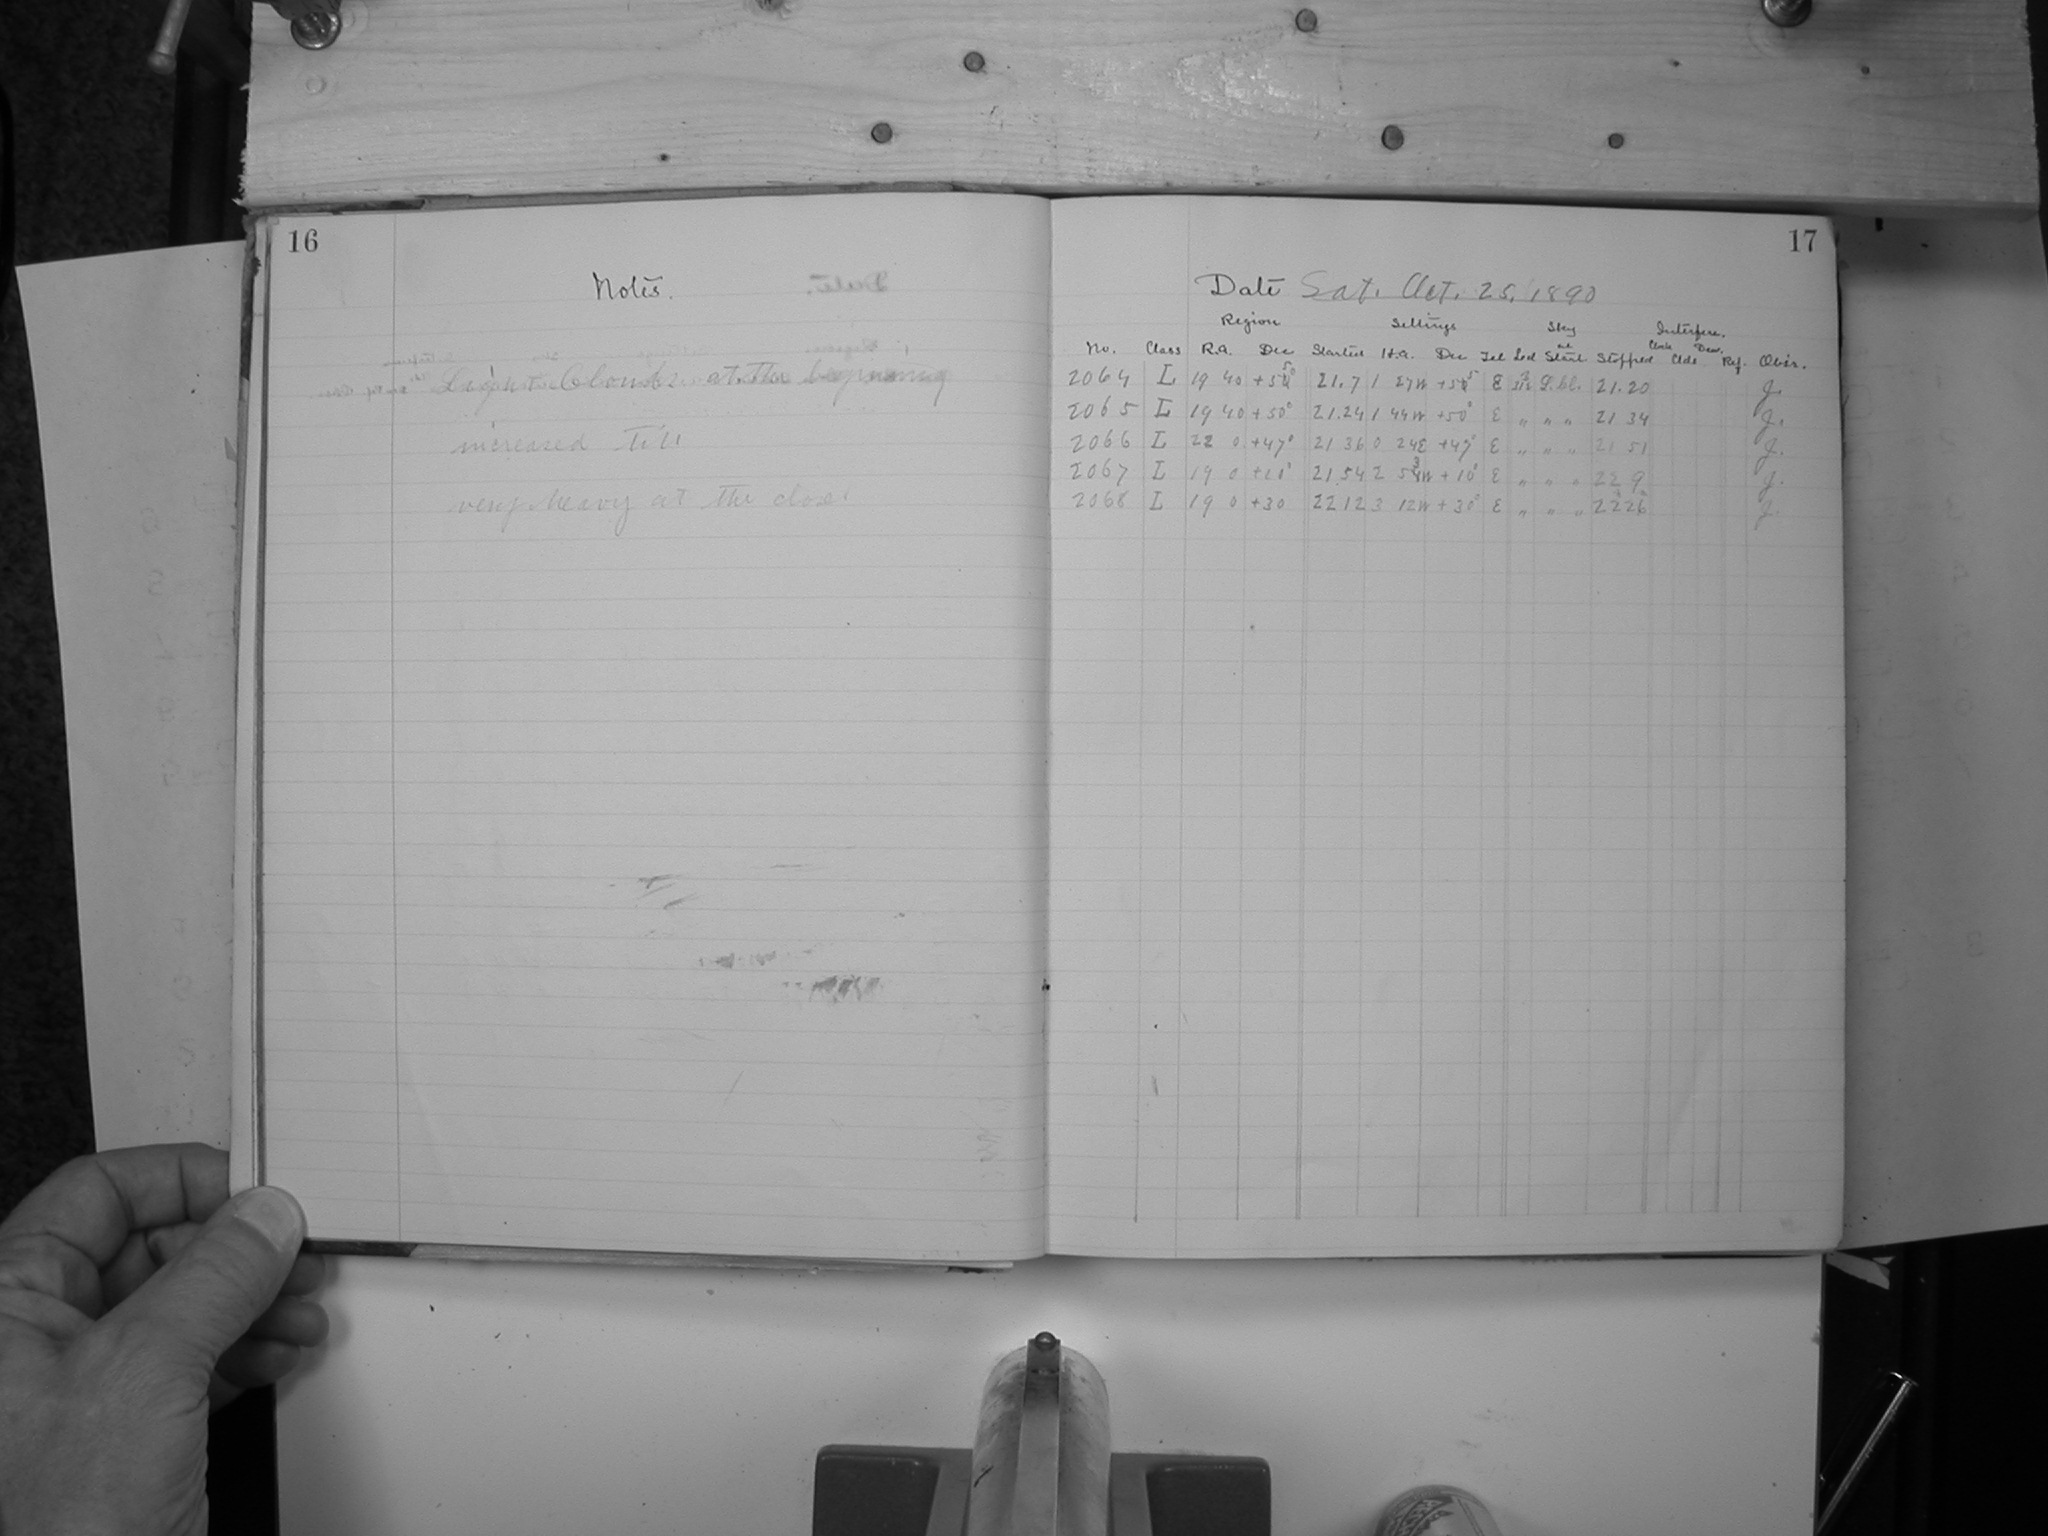 16
Notes.
Light Clouds at the beginning
increased till
very heavy at the close
17
Date Sat. Oct. 25, 1890
Region Settings Sky Interfere.
No. Class R.A. Dec Started H.A. Dec Tel Led at Start Stopped Clock Clds Dew. Ref. Obsr.
2064 L 19 40 21.7 1 27W E 21.20 J.
2065 L 19 40 +50° 21.24 1 44W +50° E „ „ „ 21 34 J.
2066 L 22 0 +47° 21 36 0 24E +47° E „ „ „ 21 51 J.
2067 L 19 0 21.54 2 +10° E „ „ „ 22 9 J.
2068 L 19 0 +30 22 12 3 12W +30° E „ „ „ 22 26 J.